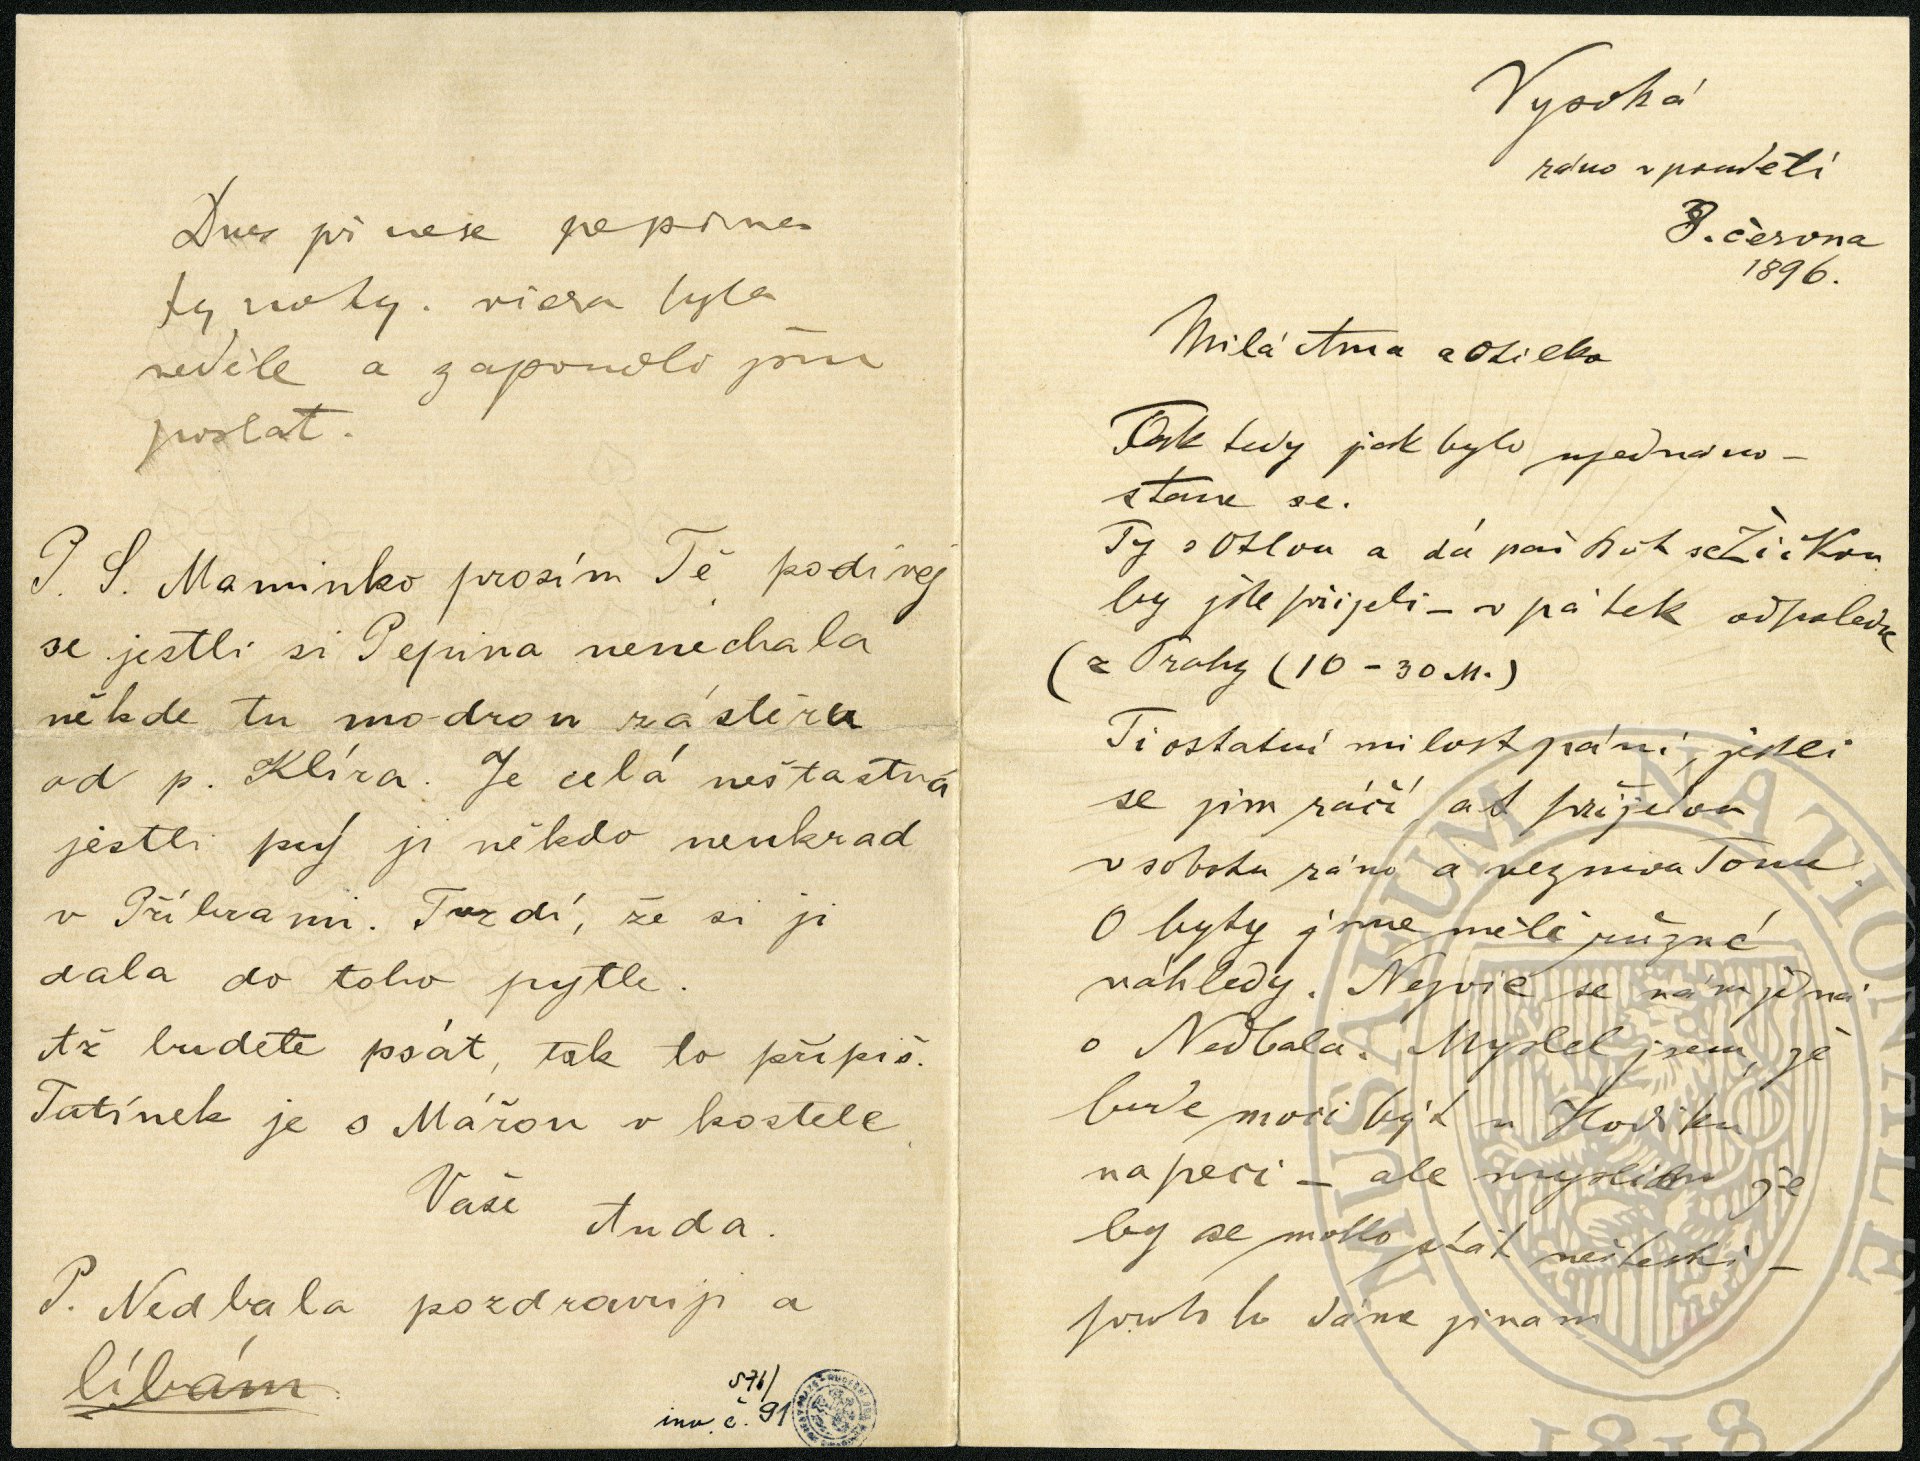 Vysoká
ráno v pondělí
8. června
1896.
Milá Anna a Otilko
Tak tedy jak bylo ujednáno –
stane se.
Ty s Otlou a
by jste přijeli – v pátek odpoledne
(z Prahy (10 – 30 M.)
Ti ostatní milostpáni, jestli
se jim ráčí at přijedou
v sobotu ráno a vezmou Tonu.
O byty jsme měli různé
náhledy. Nejvíc se nám jedná
o Nedbala. Myslel jsem, že
bude moci být u Hodíku
na peci – ale myslím že
by se mohlo stát neštěstí –
dáme jinam
Dnes přinese pepina
ty noty. včera byla
neděle a zapomněli jsme
poslat.
P. S. Maminko prosím Tě podívej
se jestli si Pepina nenechala
někde tu modrou zástěru
od p. Klíra. Je celá neštastná
jestli prý ji někdo neukrad
v Příbrami. Tvrdí, že si ji
dala do toho pytle.
Až budete psát, tak to připiš.
Tatínek je s Mářou v kostele.
Vaše Anda.
P. Nedbala pozdravuji a
líbám.
576/
inv. č. 91
MUSAEUM NATIONALE
1818